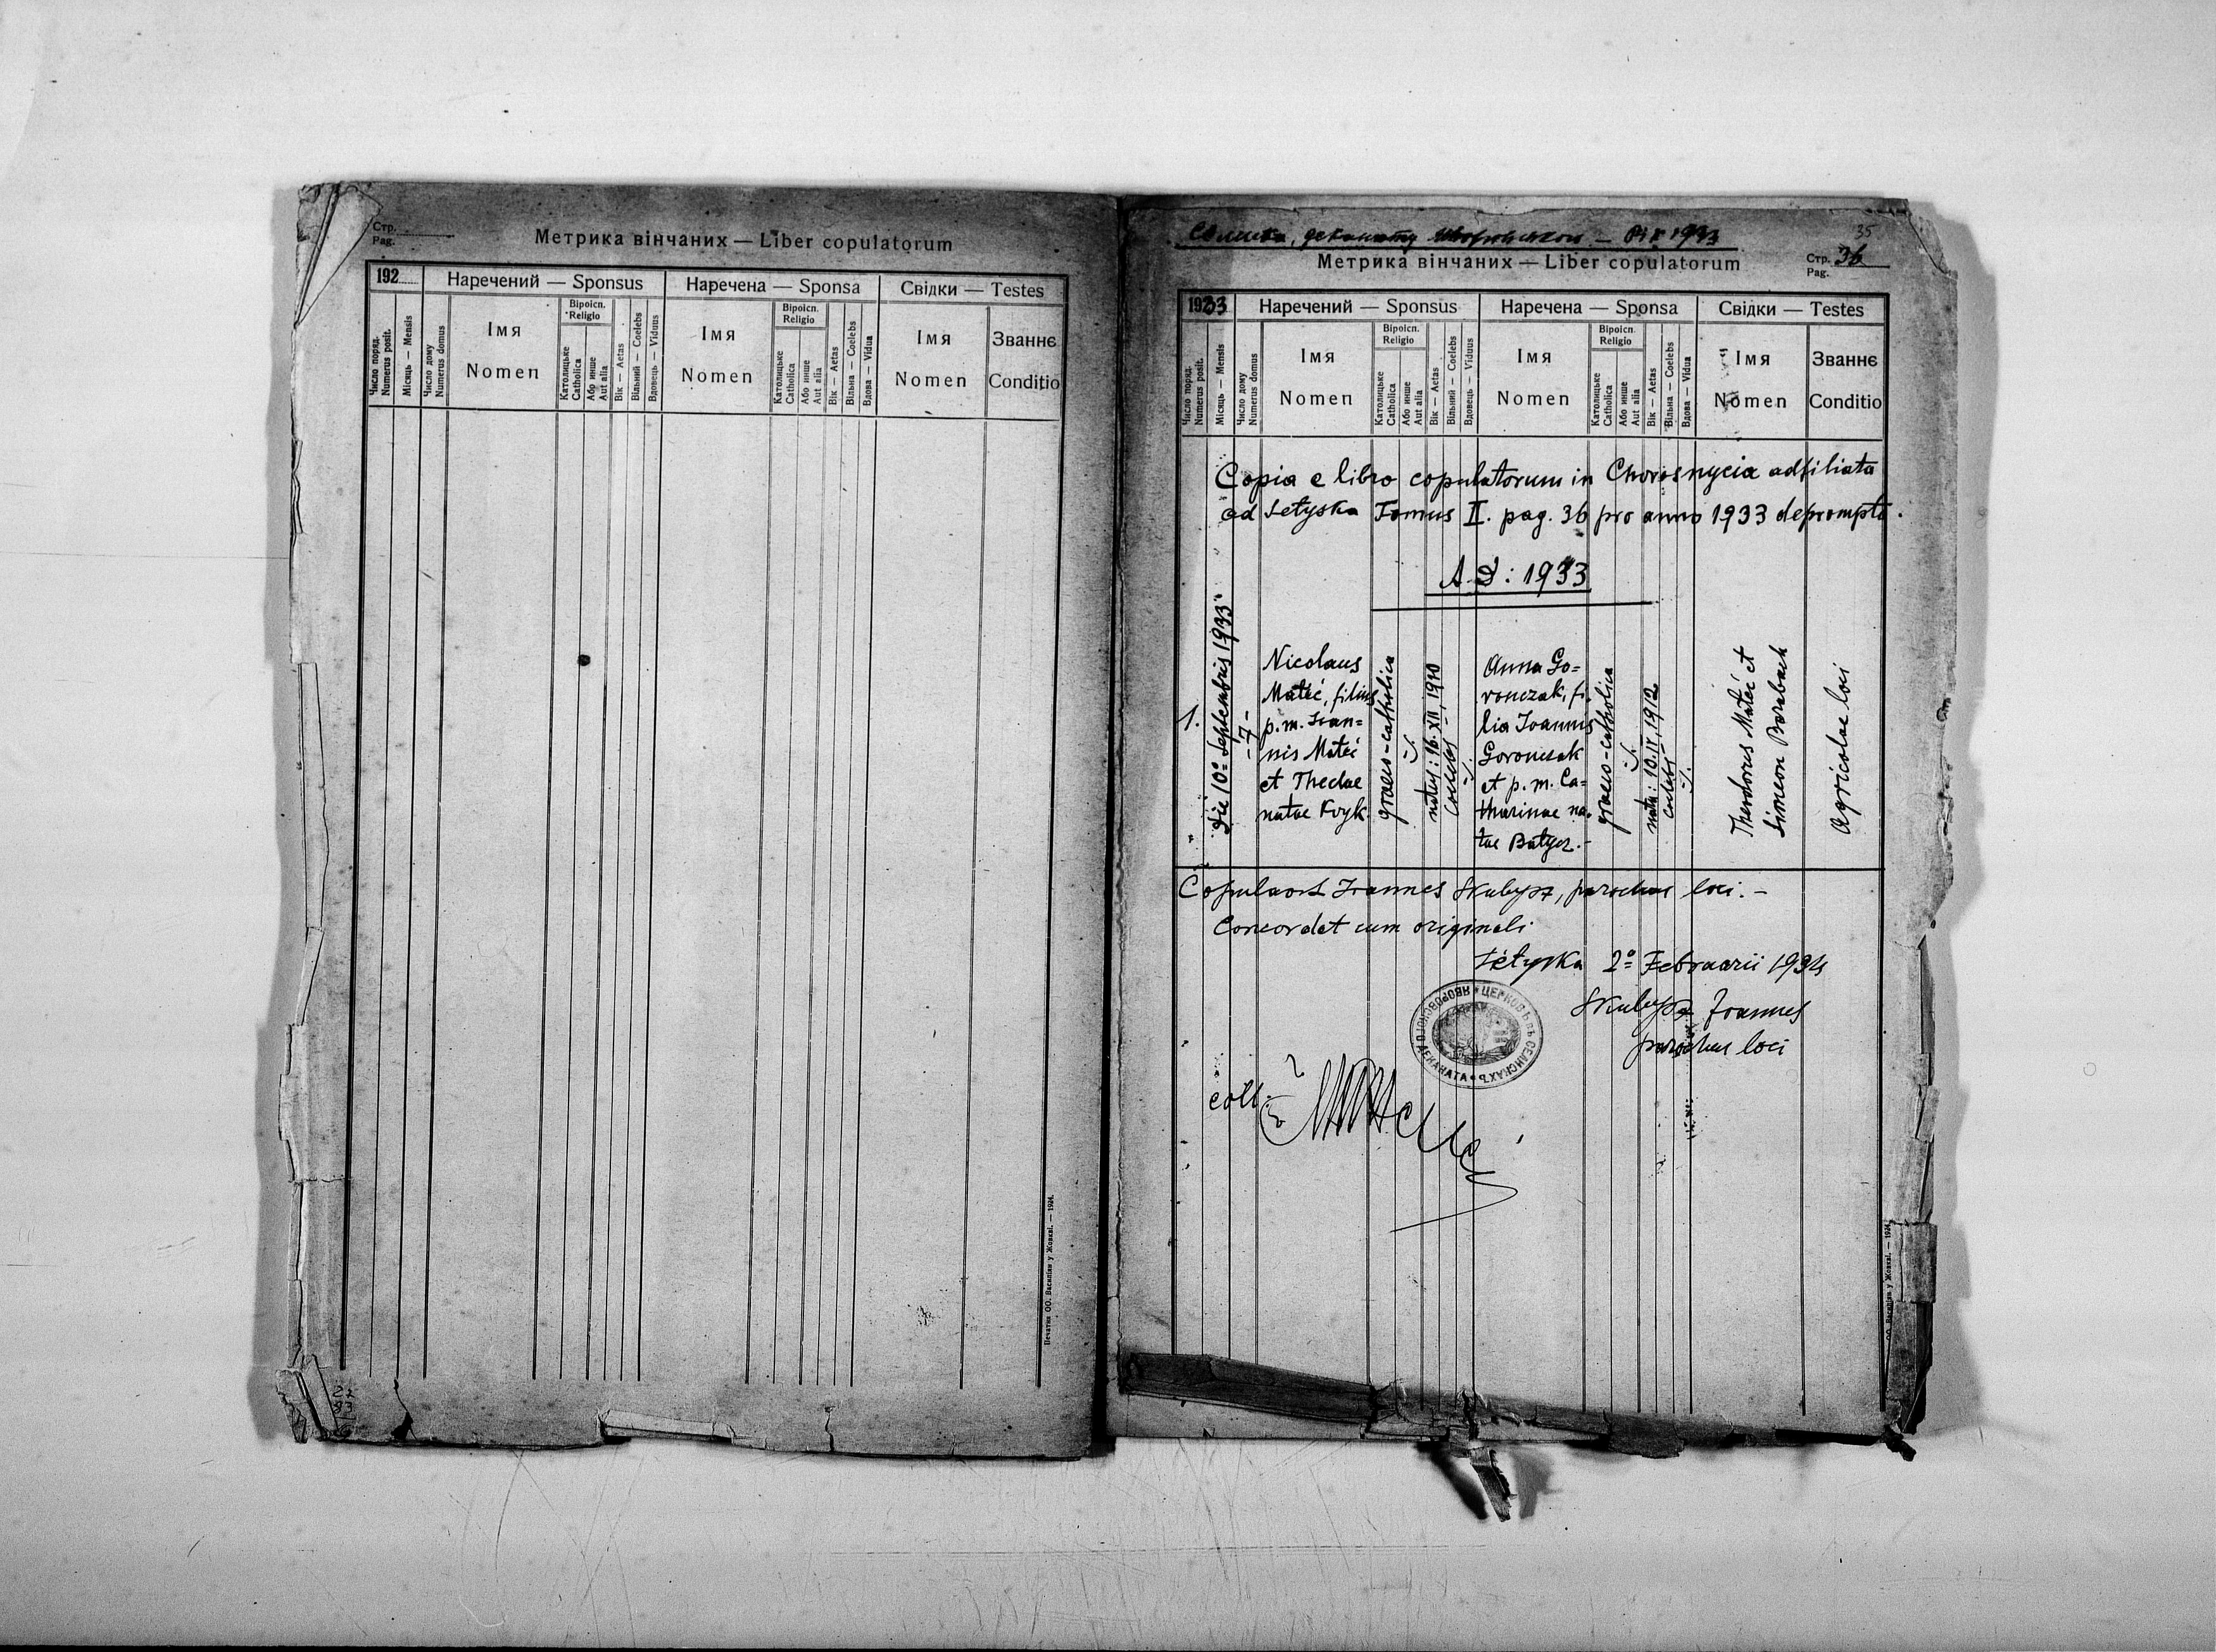 Стр.
Pag.
Метрика вінчаних — Liber copulatorum
192
Наречений — Sponsus
Наречена — Sponsa
Свідки — Testes
Число поряд.
Numerus posit.
Місяць — Mensis
Число дому
Numerus domus
Імя
Nomen
Віроісп.
Religio
Католицьке
Catholica
Або инше
Aut alia
Вік — Aetas
Вільний — Coelebs
Вдовець — Viduus
Імя
Nomen
Віроісп.
Religio
Католицьке
Catholica
Або инше
Aut alia
Вік — Aetas
Вільна — Coelebs
Вдова — Vidua
Імя
Nomen
Званнє
Conditio
Печатня ОО. Василіян у Жовкві. — 1924.
деканату
1933
35
Метрика вінчаних — Liber copulatorum
Стр.
Pag.
36
1933
Наречений — Sponsus
Наречена — Sponsa
Свідки — Testes
Число поряд.
Numerus posit.
Місяць — Mensis
Число дому
Numerus domus
Імя
Nomen
Віроісп.
Religio
Католицьке
Catholica
Або инше
Aut alia
Вік — Aetas
Вільний — Coelebs
Вдовець — Viduus
Імя
Nomen
Віроісп.
Religio
Католицьке
Catholica
Або инше
Aut alia
Вік — Aetas
Вільна — Coelebs
Вдова — Vidua
Імя
Nomen
Званнє
Conditio
Copia e libro copulatorum in Chorosnycia adfiliata
ad Setyska Tomus II. pag. 36 pro anno 1933 deprompta.
A.D: 1933
1.
Die 10º Septembris 1933
-7-
Nicolaus
Mateć, filius
p. m. Ioan=
nis Mateć
et Theclae
natae Kryk
graeco-catholica
natus: 16. XII. 1910
coelebs
Anna Go=
ronczak, fi-
lia Joannis
Goronczak
et p. m. Ca=
tharinae na-
tae Batyer.-
graeco-catholica
nata: 10. IV. 1912
coelebs
Theodorus Mateć et
Simeon Barabach
agricolae loci
Copulavit Joannes Skubysz, parochus loci. -
Concordat cum originali
Setyska 2º Februarii 1934
Skubysz Joannes
parochus loci
ЦЕРКОВЬ ВЪ СЕЛИСКАХЪ ЯВОРОВСКОГО ДЕКАНАТА
coll.
ОО. Василіян у Жовкві. — 1924.